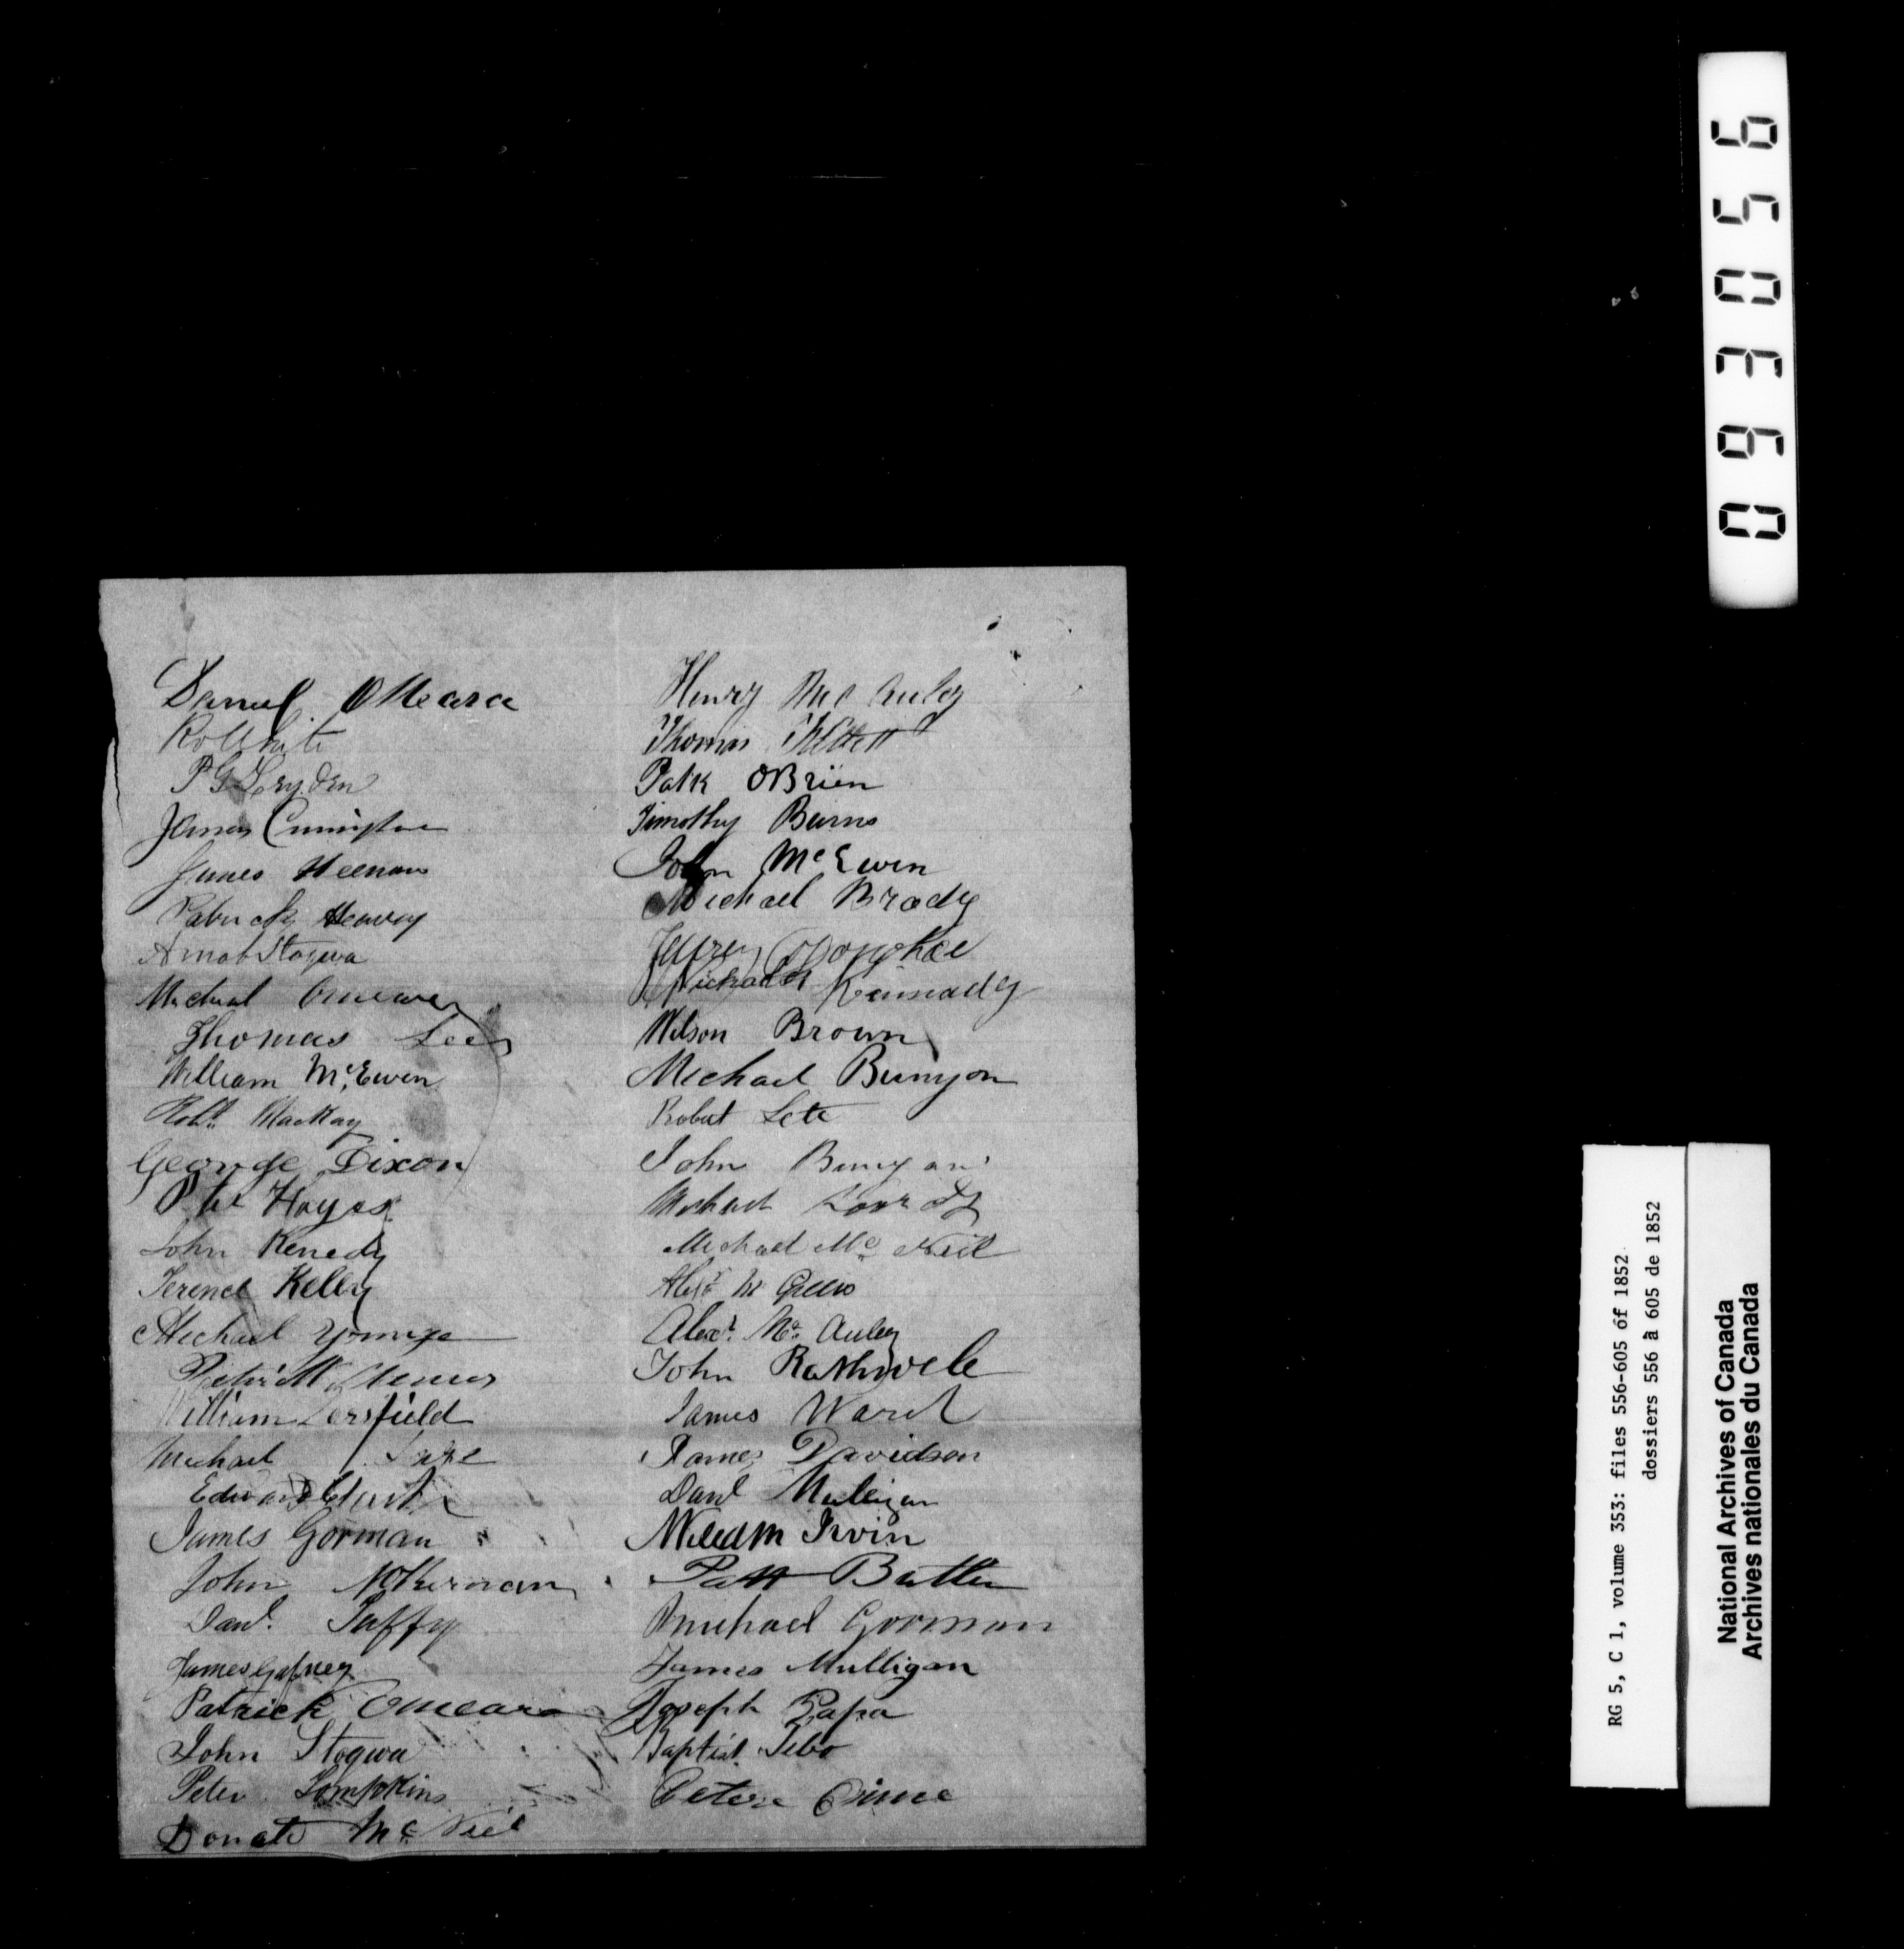 Daniel OMeara
Rob White
P G Dryden
James Cunington
James Heenan
Patrick Heavey
Stogwa
Michael Omeara
Thomas Lee
William McEwen
Robt. MacKay
George Dixon
Hayes
John Kenedy
Terence Kelly
Michael Young
William
Michael
Edward
James Gorman
John McKernan
Danl. Taffy
James Gafney
Patrick Omeara
John Stogwa
Peter Tompkins
Donald Mc Neil
Henry McAuley
Thomas
Patk OBrien
Timothy Burns
John McEwen
Michael Brady
Jeffrey ODonohoe
Michael Kennady
Wilson Brown
Michael Bunyon
Robert Lete
John Bunyan
Michael
Michael Mc Neil
Alexr Mc
Alexr. Mc Auley
John Rathwele
James Ward
James Davidson
Danl Muligan
Willdm Irvin
Patt Butler
Michael Gorman
James Mulligan
Joseph Papa
Baptist Tebo
Peter
093056
RG 5, C 1, volume 353: files 556-605 of 1852
dossiers 556 à 605 de 1852
National Archives of Canada
Archives nationales du Canada